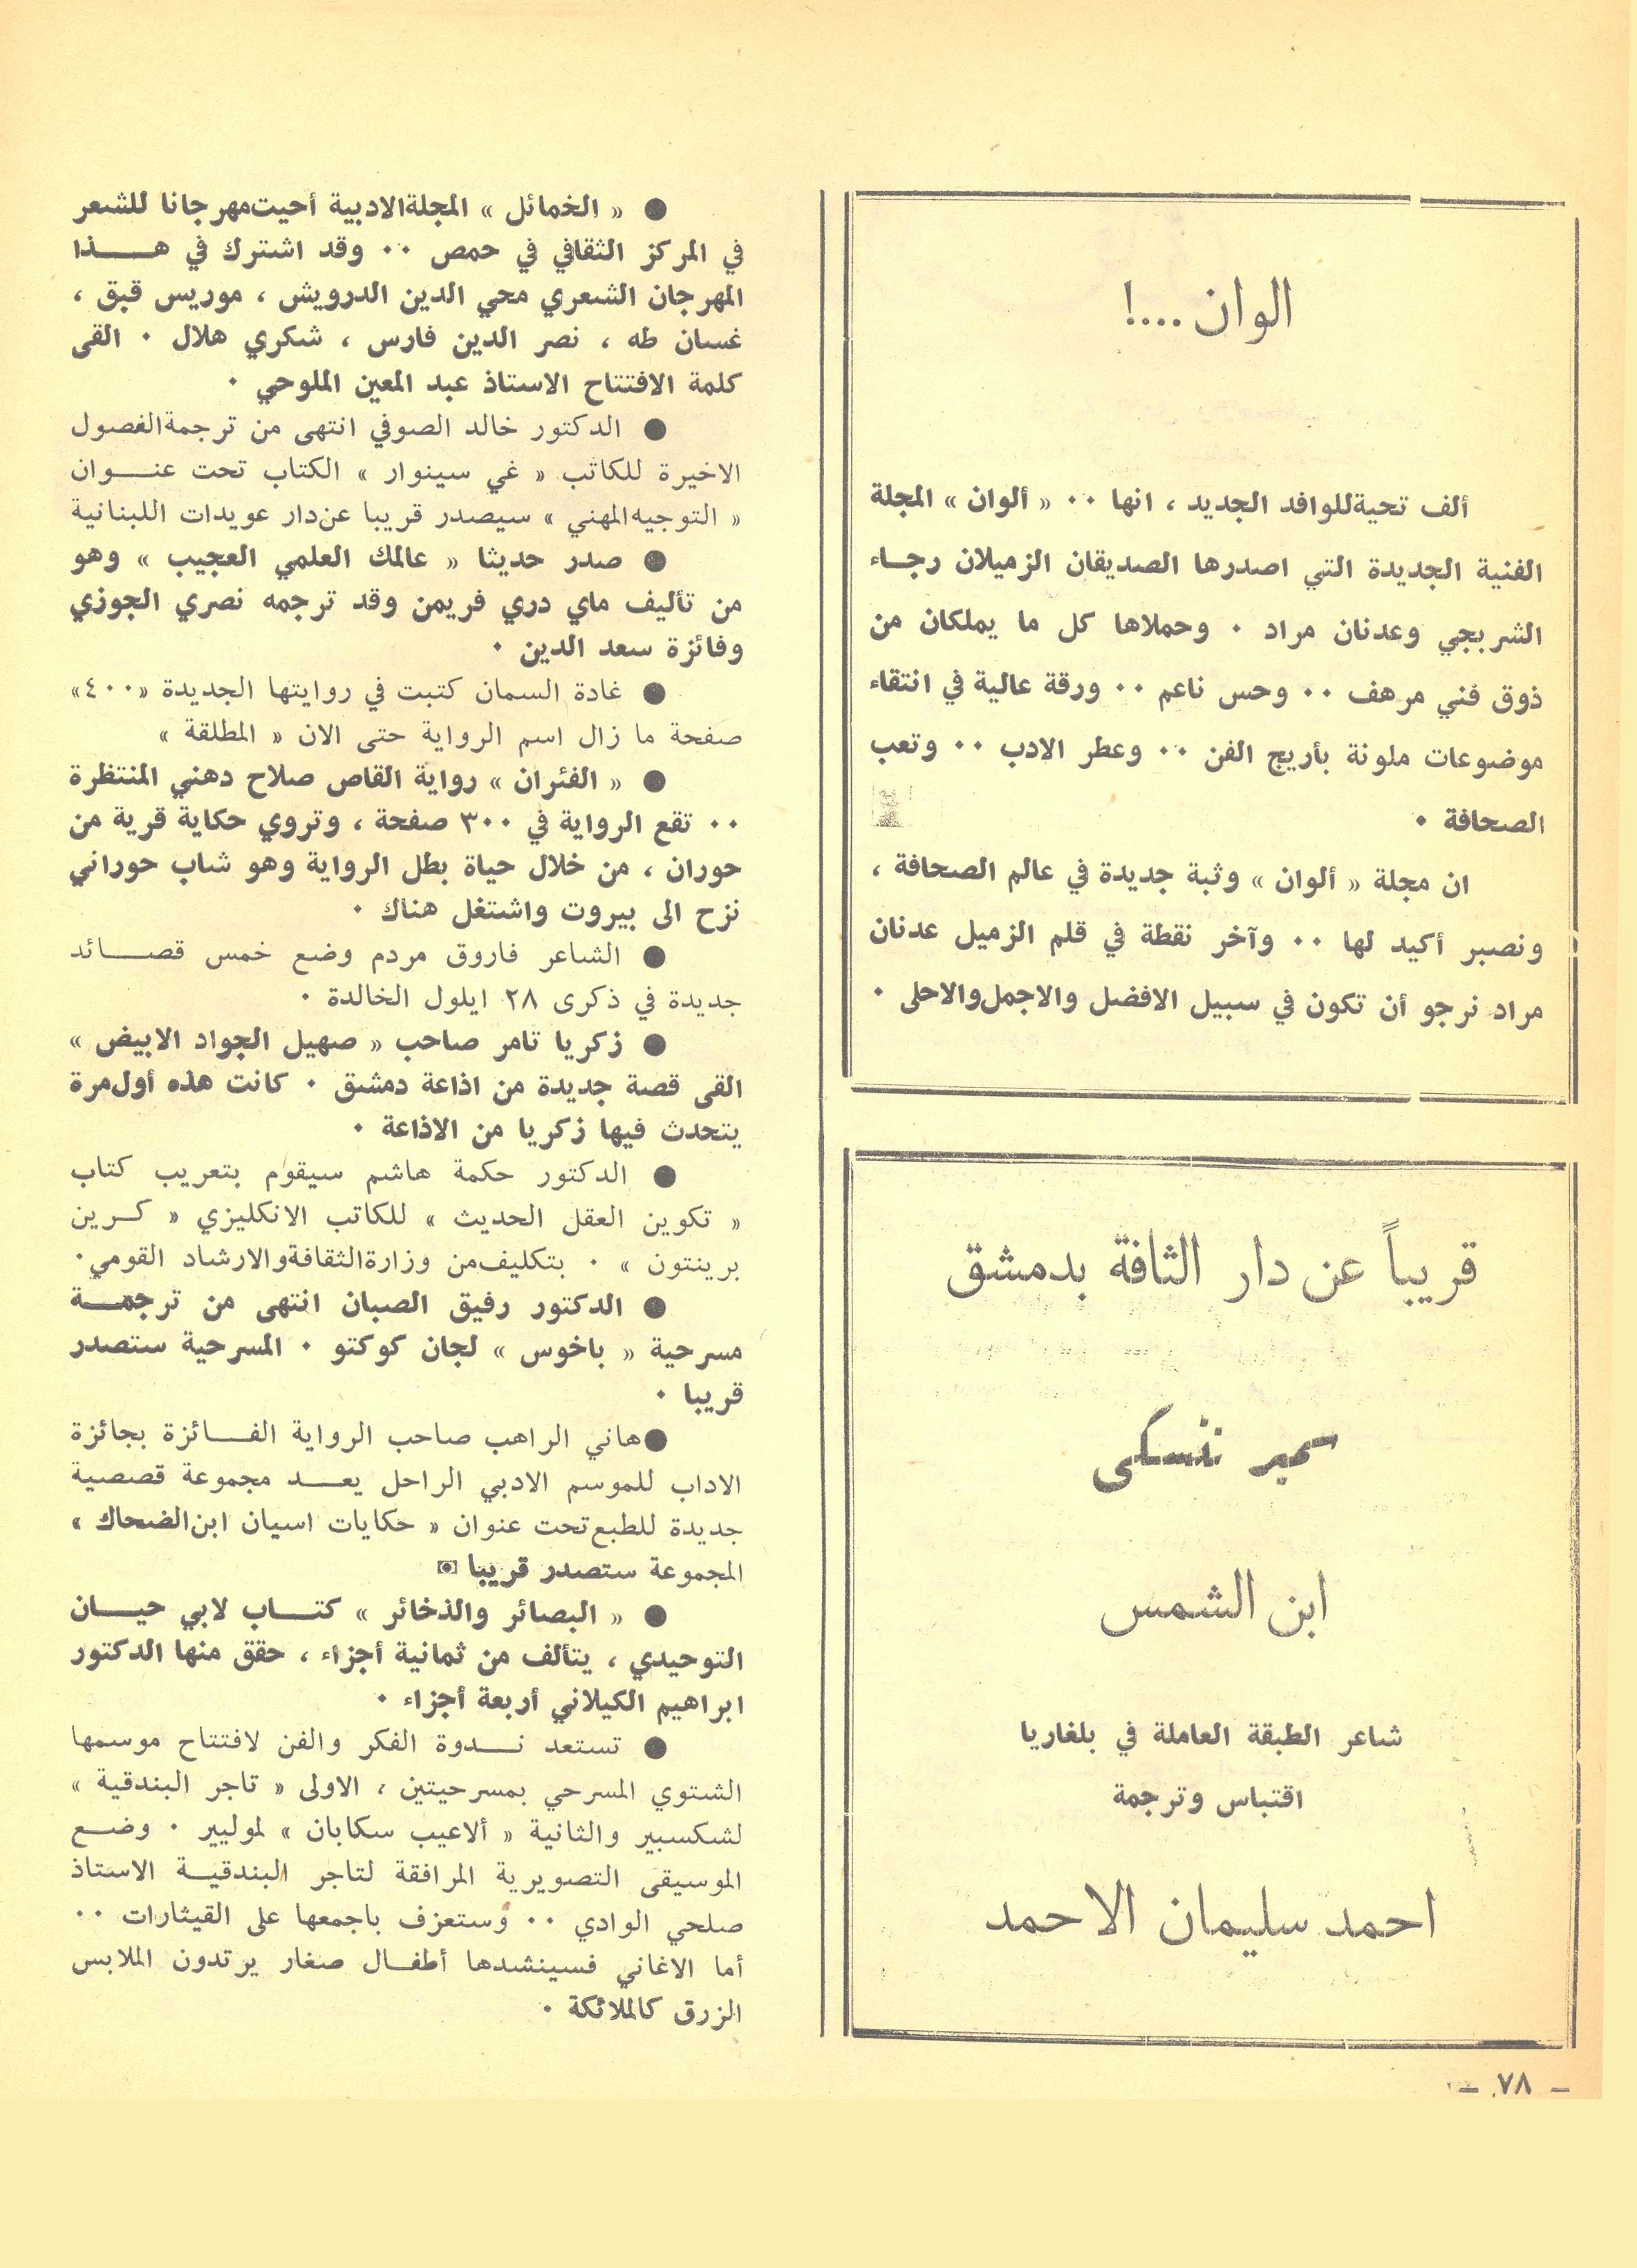 الوان ....!
ألف تحية للوافد الجديد ، انها ٠٠ « ألوان » المجلة
الفنية الجديدة التي اصدرها الصديقان الزميلان رجاء
الشربجي وعدنان مراد ٠ وحملاها كل ما يملكان من
ذوق فني مرهف ٠٠ وحس ناعم ٠٠ ورقة عالية في انتقاء
موضوعات ملونة بأريج الفن ٠٠ وعطر الادب ٠٠ وتعب
الصحافة ٠
ان مجلة « ألوان » وثبة جديدة في عالم الصحافة ،
ونصبر أكيد لها ٠٠ وآخر نقطة في قلم الزميل عدنان
مراد نرجو أن تكون في سبيل الافضل والاجمل والاحلى ٠
قريباً عن دار الثافة بدمشق
سمير ننسكي
ابن الشمس
شاعر الطبقة العاملة في بلغاريا
اقتباس وترجمة
احمد سليمان الاحمد
● « الخمائل » المجلة الادبية أحيت مهرجانا للشعر
في المركز الثقافي في حمص ٠٠ وقد اشترك في هذا
المهرجان الشعري محي الدين الدرويش ، موريس قبق ،
غسان طه ، نصر الدين فارس ، شكري هلال ٠ القى
كلمة الافتتاح الاستاذ عبد المعين الملوحي ٠
● الدكتور خالد الصوفي انتهى من ترجمة الفصول
الاخيرة للكاتب « غي سينوار » الكتاب تحت عنوان
« التوجيه المهني » سيصدر قريبا عن دار عويدات اللبنانية
● صدر حديثا « عالمك العلمي العجيب » وهو
من تأليف ماي دري فريمن وقد ترجمه نصري الجوزي
وفائزة سعد الدين ٠
● غادة السمان كتبت في روايتها الجديدة «٤٠٠»
صفحة ما زال اسم الرواية حتى الان « المطلقة »
● « الفئران » رواية القاص صلاح دهني المنتظرة
٠٠ تقع الرواية في ٣٠٠ صفحة ، وتروي حكاية قرية من
حوران ، من خلال حياة بطل الرواية وهو شاب حوراني
نزح الى بيروت واشتغل هناك ٠
● الشاعر فاروق مردم وضع خمس قصائد
جديدة في ذكرى ٢٨ ايلول الخالدة ٠
● زكريا تامر صاحب « صهيل الجواد الابيض »
القى قصة جديدة من اذاعة دمشق ٠ كانت هذه أول مرة
يتحدث فيها زكريا من الاذاعة ٠
● الدكتور حكمة هاشم سيقوم بتعريب كتاب
« تكوين العقل الحديث » للكاتب الانكليزي « كرين
برينتون » ٠ بتكليف من وزارة الثقافة والارشاد القومي ٠
● الدكتور رفيق الصبان انتهى من ترجمة
مسرحية « باخوس » لجان كوكتو ٠ المسرحية ستصدر
قريبا ٠
● هاني الراهب صاحب الرواية الفائزة بجائزة
الاداب للموسم الادبي الراحل يعد مجموعة قصصية
جديدة للطبع تحت عنوان « حكايات اسيان ابن الضحاك »
المجموعة ستصدر قريبا
● « البصائر والذخائر » كتاب لابي حيان
التوحيدي ، يتألف من ثمانية أجزاء ، حقق منها الدكتور
ابراهيم الكيلاني أربعة أجزاء ٠
● تستعد ندوة الفكر والفن لافتتاح موسمها
الشتوي المسرحي بمسرحيتين ، الاولى « تاجر البندقية »
لشكسبير والثانية « ألاعيب سكابان » لموليير ٠ وضع
الموسيقى التصويرية المرافقة لتاجر البندقية الاستاذ
صلحي الوادي ٠٠ وستعزف باجمعها على القيثارات ٠٠
أما الاغاني فسينشدها أطفال صغار يرتدون الملابس
الزرق كالملائكة ٠
– ٧٨ –